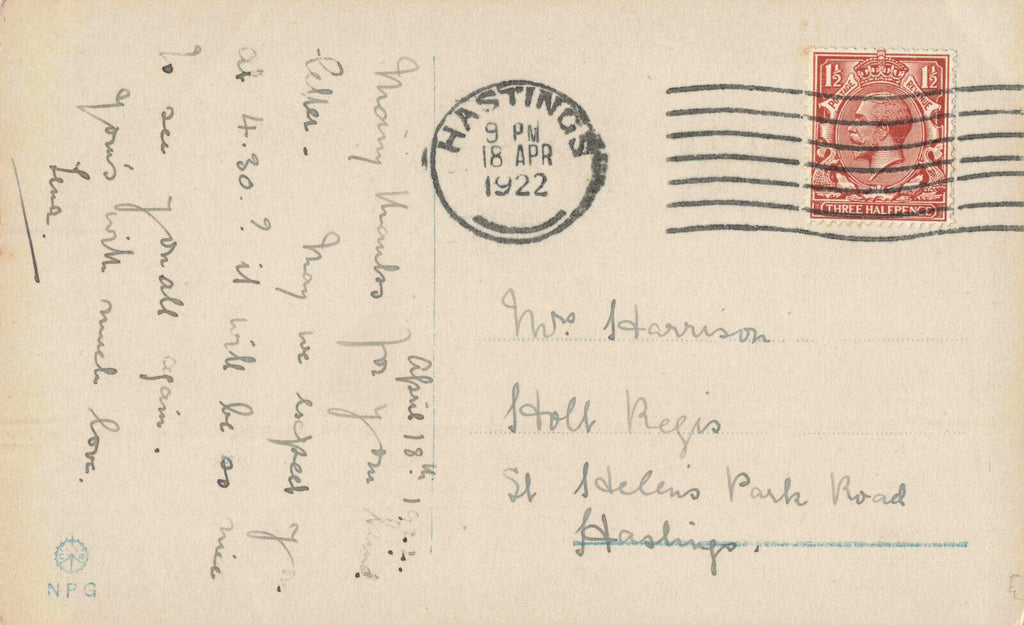 April 18th 1922.
Many thanks for your kind
letter. May we expect you
at 4.30.? it will be so nice
to see you all again.
Yours with much love.
Lena.
HASTINGS
9 PM
18 APR
1922
1½ 1½
POSTAGE REVENUE
THREE HALFPENCE
Mrs Harrison
Holt Regis
St Helens Park Road
Hastings.
NPG